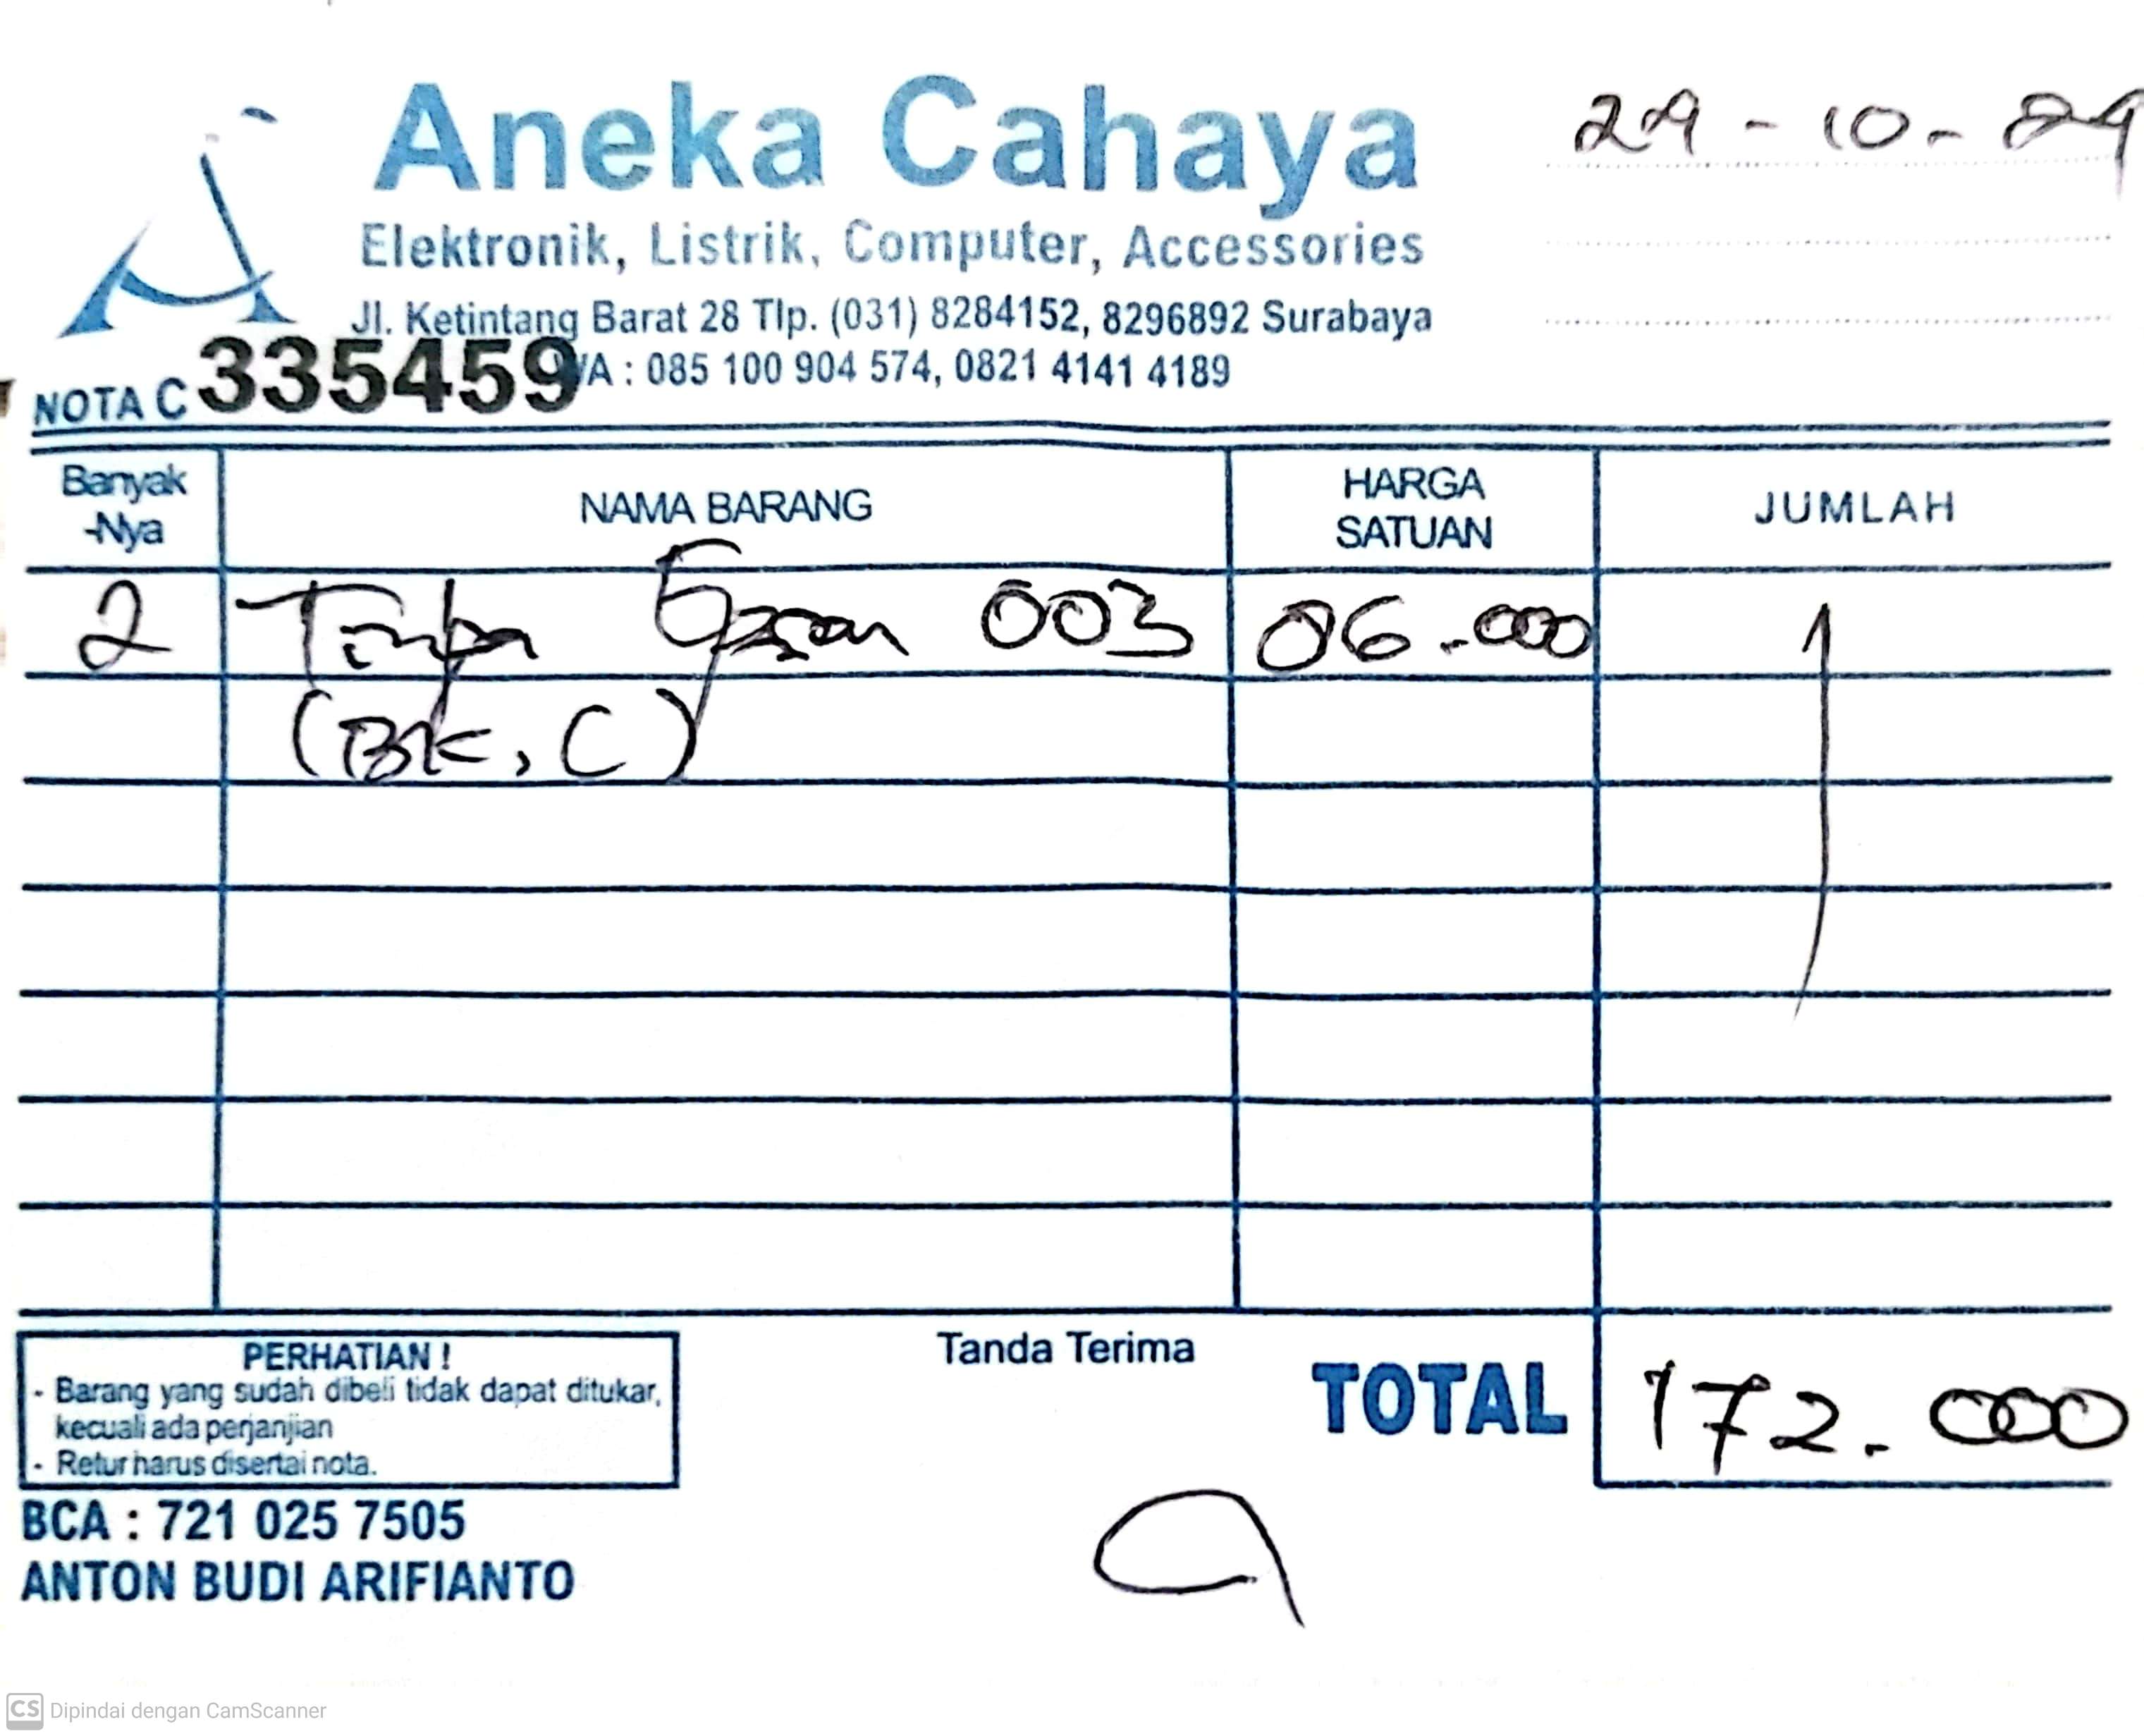 Aneka Cahaya
29-10-24
Elektronik, Listrik, Computer, Accessories
Jl. Ketintang Barat 28 Tlp. (031) 8284152, 8296892 Surabaya
WA : 085 100 904 574, 0821 4141 4189
NOTA C 335459
Banyak
-Nya
NAMA BARANG
HARGA
SATUAN
JUMLAH
2 Tinta Epson 003 86.000
(BK, C)
PERHATIAN !
- Barang yang sudah dibeli tidak dapat ditukar,
kecuali ada perjanjian
- Retur harus disertai nota.
Tanda Terima
TOTAL 172.000
BCA : 721 025 7505
ANTON BUDI ARIFIANTO
CS Dipindai dengan CamScanner